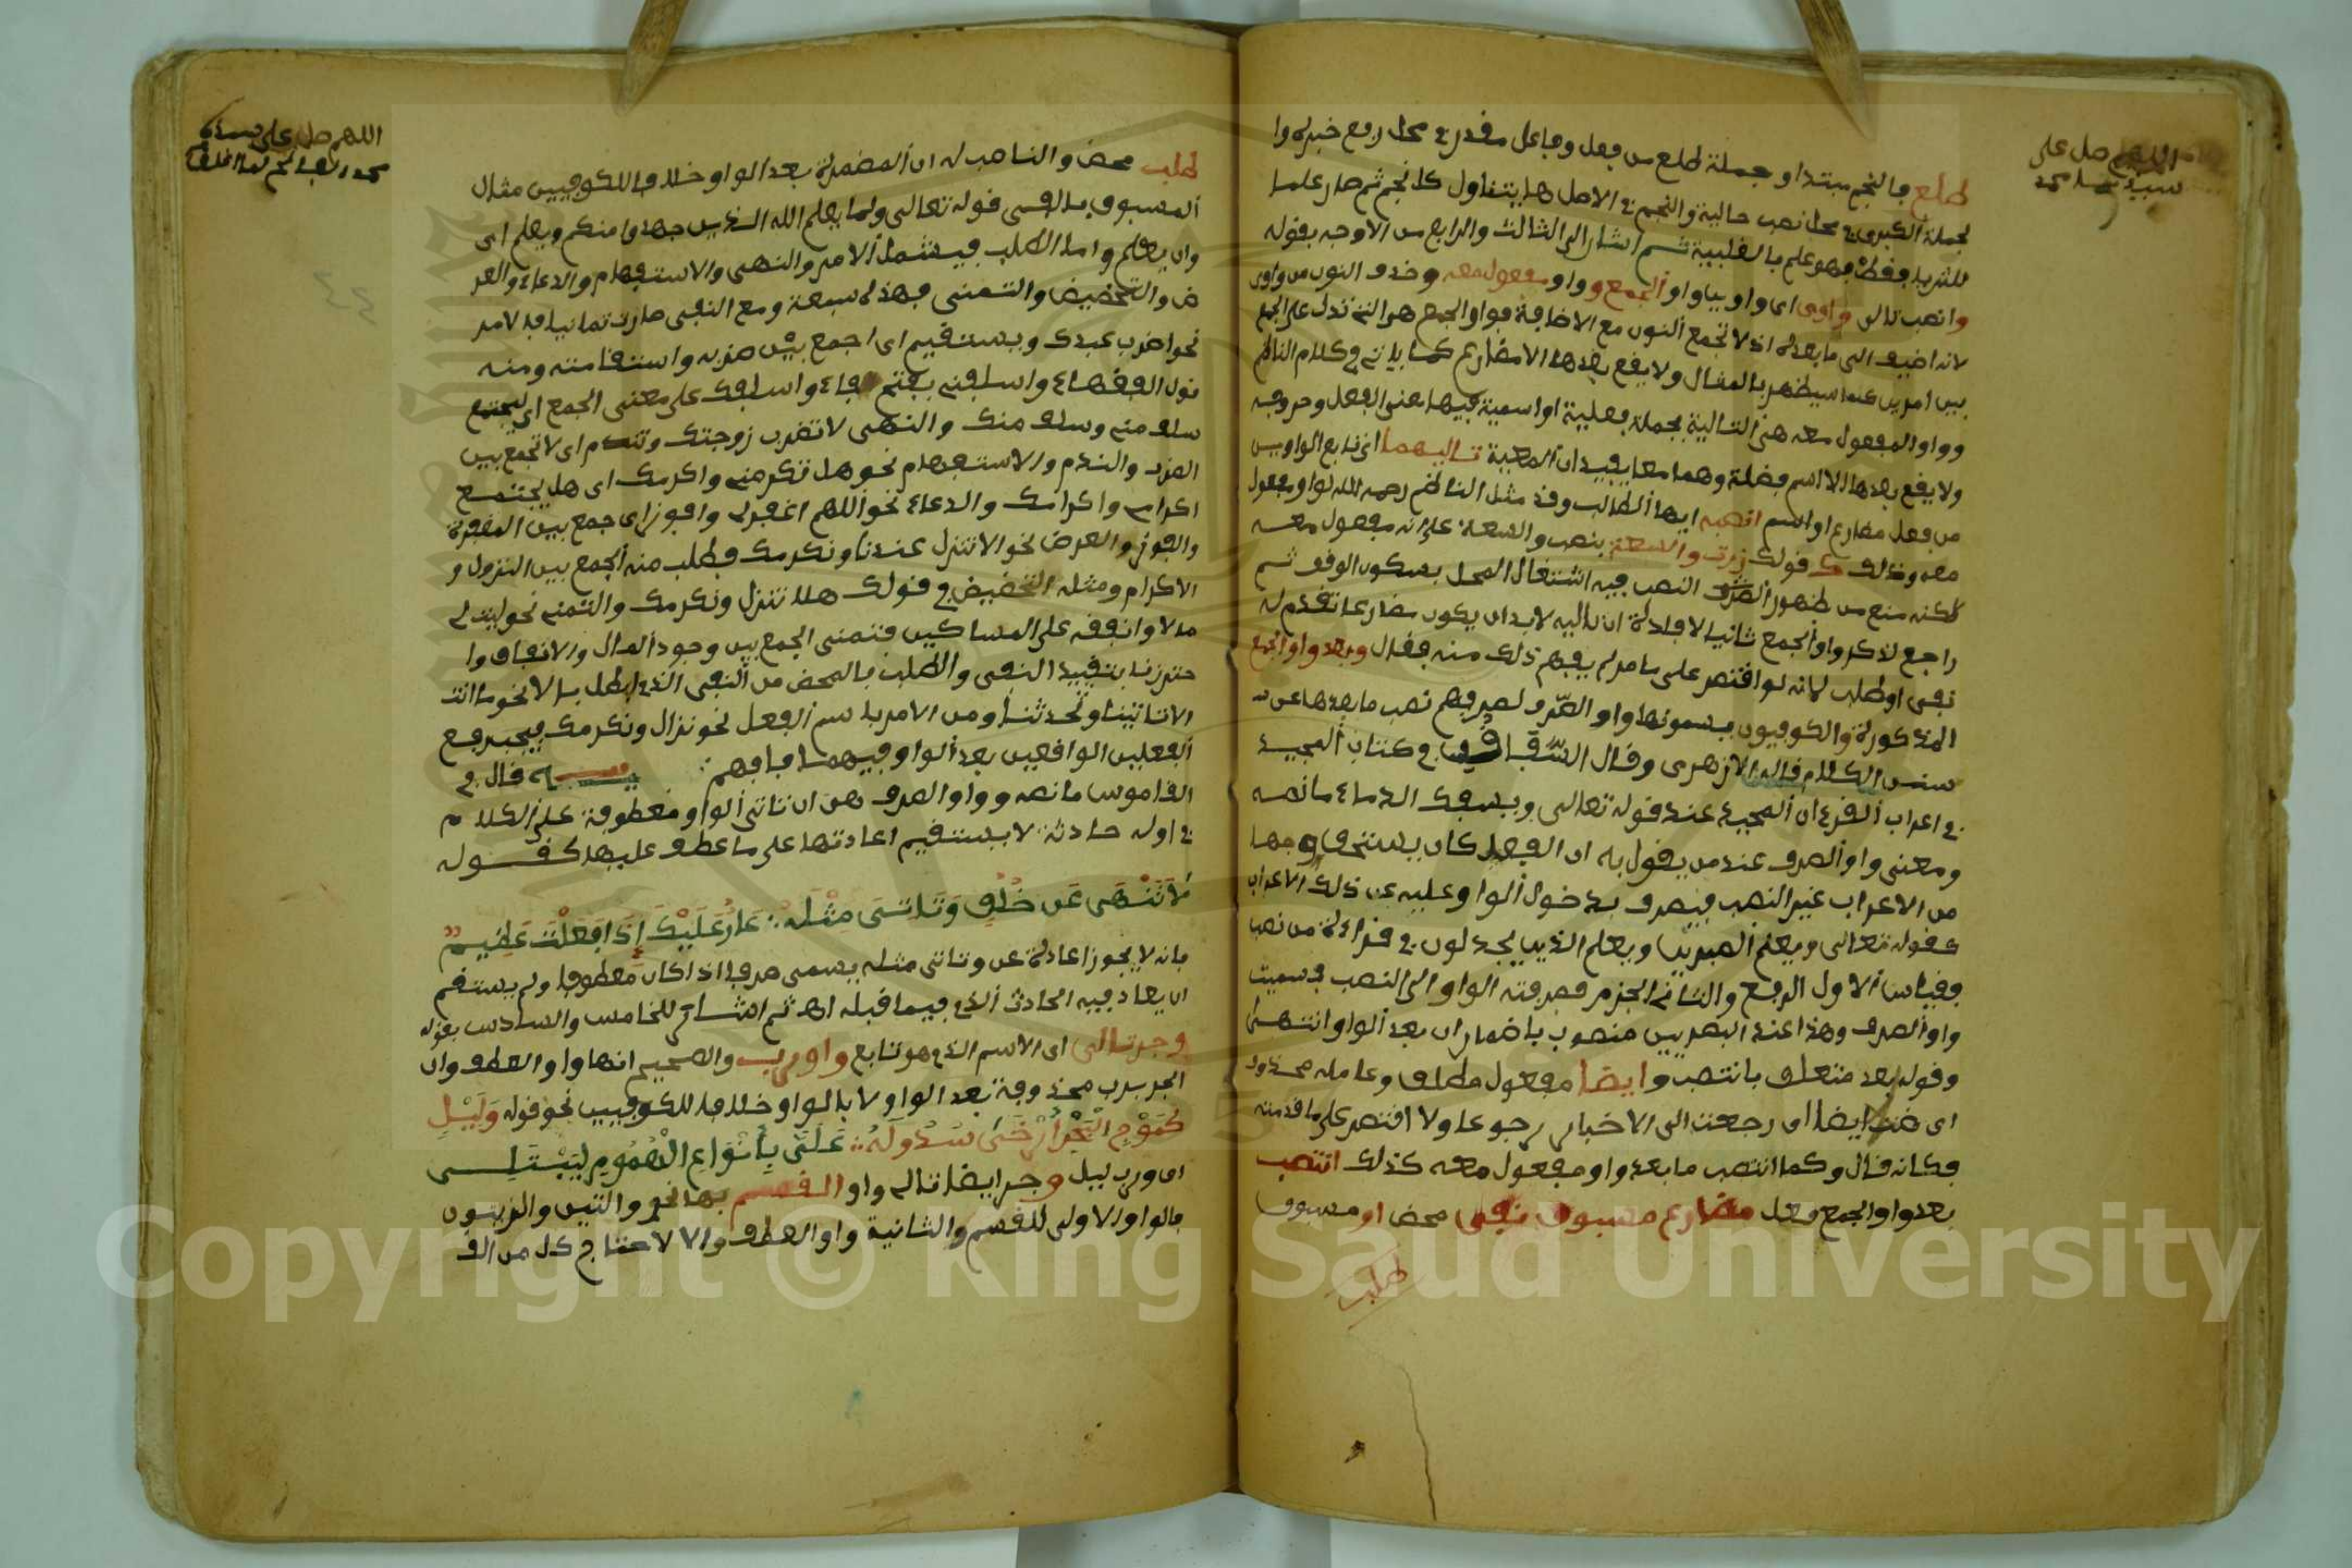 اللهم صل على
سيدنا محمد
طلع فالنجم مبتدا وجملة طلع من فعل وفاعل مقدر في محل رفع خبره وا
لجملة الكبرى في محل نصب حالية والنجم في الاصل هل يتناول كل نجم ثم صار علما
للثريا فقط فهو علم بالغلبة ثم اشار الى الثالث والرابع من الاوجه بقوله
وانصب تالى واوى اى واويا واو الجمع وواو مفعول معه وحذف النون من واوى
لانه اضيف الى ما بعده اذ لا تجمع النون مع الاضافة فواو الجمع هى التى تدل على الجمع
بين امرين كما سيظهر بالمثال ولا يقع بعدها الا مضارع كما ياتى في كلام الناظم
وواو المفعول معه هى التالية لجملة فعلية او اسمية فيها معنى الفعل وحروفه
ولا يقع بعدها الا اسم فضلة وهما معا يفيدان المعية تاليهما اى تابع الواوين
من فعل مضارع او اسم انصبه ايها الطالب وقد مثل الناظم رحمه الله لواو مفعول
معه وذلك كقولك زرت والسعة بنصب والسعة على انه مفعول معه
لكنه منع من ظهور النصب فيه اشتغال المحل بسكون الوقف ثم
راجع لذكر واو الجمع ثانيا لافادة ان تاليه لا بد ان يكون مضارعا تقدم له
نفى او طلب لانه لو اقتصر على ما مر لم يفهم ذلك منه فقال وبعد واو الجمع
المذكورة والكوفيون يسمونها واو الصرف لصرفهم نصب ما بعدها عن
سنن الكلام قاله الازهرى وقال السفاقسى في كتاب المجيد
في اعراب القرءان المجيد عند قوله تعالى ويسفك الدماء ما نصه
ومعنى واو الصرف عند من يقول به ان الفعل كان يستحق وجها
من الاعراب غير النصب فيصرف بدخول الواو عليه عن ذلك الاعراب
كقوله تعالى ويعلم الصبرين ويعلم الذين يجدلون في قراءة من نصب
فقياس الاول الرفع والثانى الجزم فصرفته الواو الى النصب فسميت
واو الصرف وهذا عند البصريين منصوب باضمار ان بعد الواو انتهى
وقوله بعد متعلق بانتصب وايضا مفعول مطلق وعامله محذوف
اى ضت ايضا اى رجعت الى الاخبار رجوعا ولا اقتصر على ما قدمته
فكانه قال وكما انتصب ما بعد واو مفعول معه كذلك انتصب
بعد واو الجمع فعل مضارع مسبوق بنفى محض او مسبوق
طلب
اللهم صل على سيدنا
محمد الفاتح لما اغلق
طلب محض والناصب له ان المضمرة بعد الواو خلافا للكوفيين مثال
المسبوق بالنفى قوله تعالى ولما يعلم الله الذين جهدوا منكم ويعلم اى
وان يعلم واما الطلب فيشمل الامر والنهى والاستفهام والدعاء والعر
ض والتحضيض والتمنى فهذه سبعة ومع النفى صارت ثمانيا فالامر
نحو اضرب عبدك ويستقيم اى اجمع بين ضربه واستقامته ومنه
قول الفقهاء واسلفنى بفتح الفاء واسلفك على معنى الجمع اى ليجتمع
سلف منى وسلف منك والنهى لا تضرب زوجتك وتندم اى لا تجمع بين
الضرب والندم والاستفهام نحو هل تكرمنى واكرمك اى هل يجتمع
اكرام واكرامك والدعاء نحو اللهم اغفر لى وافوز اى جمع بين المغفرة
والفوز والعرض نحو الا تنزل عندنا ونكرمك فطلب منه الجمع بين النزول و
الاكرام ومثله التحضيض في قولك هلا تنزل ونكرمك والتمنى نحو ليت لى
مالا وانفقه على المساكين فتمنى الجمع بين وجود المال والانفاق وا
حترزنا بتقييد النفى والطلب بالمحض من النفى الذى ابطل بالا نحو ما انت
الا تاتينا وتحدثنا ومن الامر باسم الفعل نحو نزال ونكرمك فيجب رفع
الفعلين الواقعين بعد الواو فيهما فافهم تنبيه قال في
القاموس ما نصه وواو الصرف هى ان تاتى الواو معطوفة على كلام
في اوله حادثة لا يستقيم اعادتها على ما عطف عليها كقوله
لَا تَنْهَى عَن خُلُقٍ وَتَاتِىَ مِثْلَهُ عَارٌ عَلَيْكَ إِذَا فَعَلْتَ عَظِيمٌ
فانه لا يجوز اعادة عن وتاتى مثله يسمى صرفا اذا كان معطوفا ولم يستقم
ان يعاد فيه الحادث الذى فيما قبله اهـ ثم اشار للخامس والسادس بقوله
وجر تالى اى الاسم الذى هو تابع واو رب والصحيح انها واو العطف وان
الجر برب محذوفة بعد الواو لا بالواو خلافا للكوفيين نحو قوله وَلَيْلٍ
كَمَوْجِ الْبَحْرِ أَرْخَى سُدُولَهُ عَلَىَّ بِأَنْوَاعِ الْهُمُومِ لِيَبْتَلِى
اى ورب ليل وجر ايضا تالى واو القسم بها نحو والتين والزيتون
فالواو الاولى للقسم والثانية واو العطف والا لاحتاج كل من الق